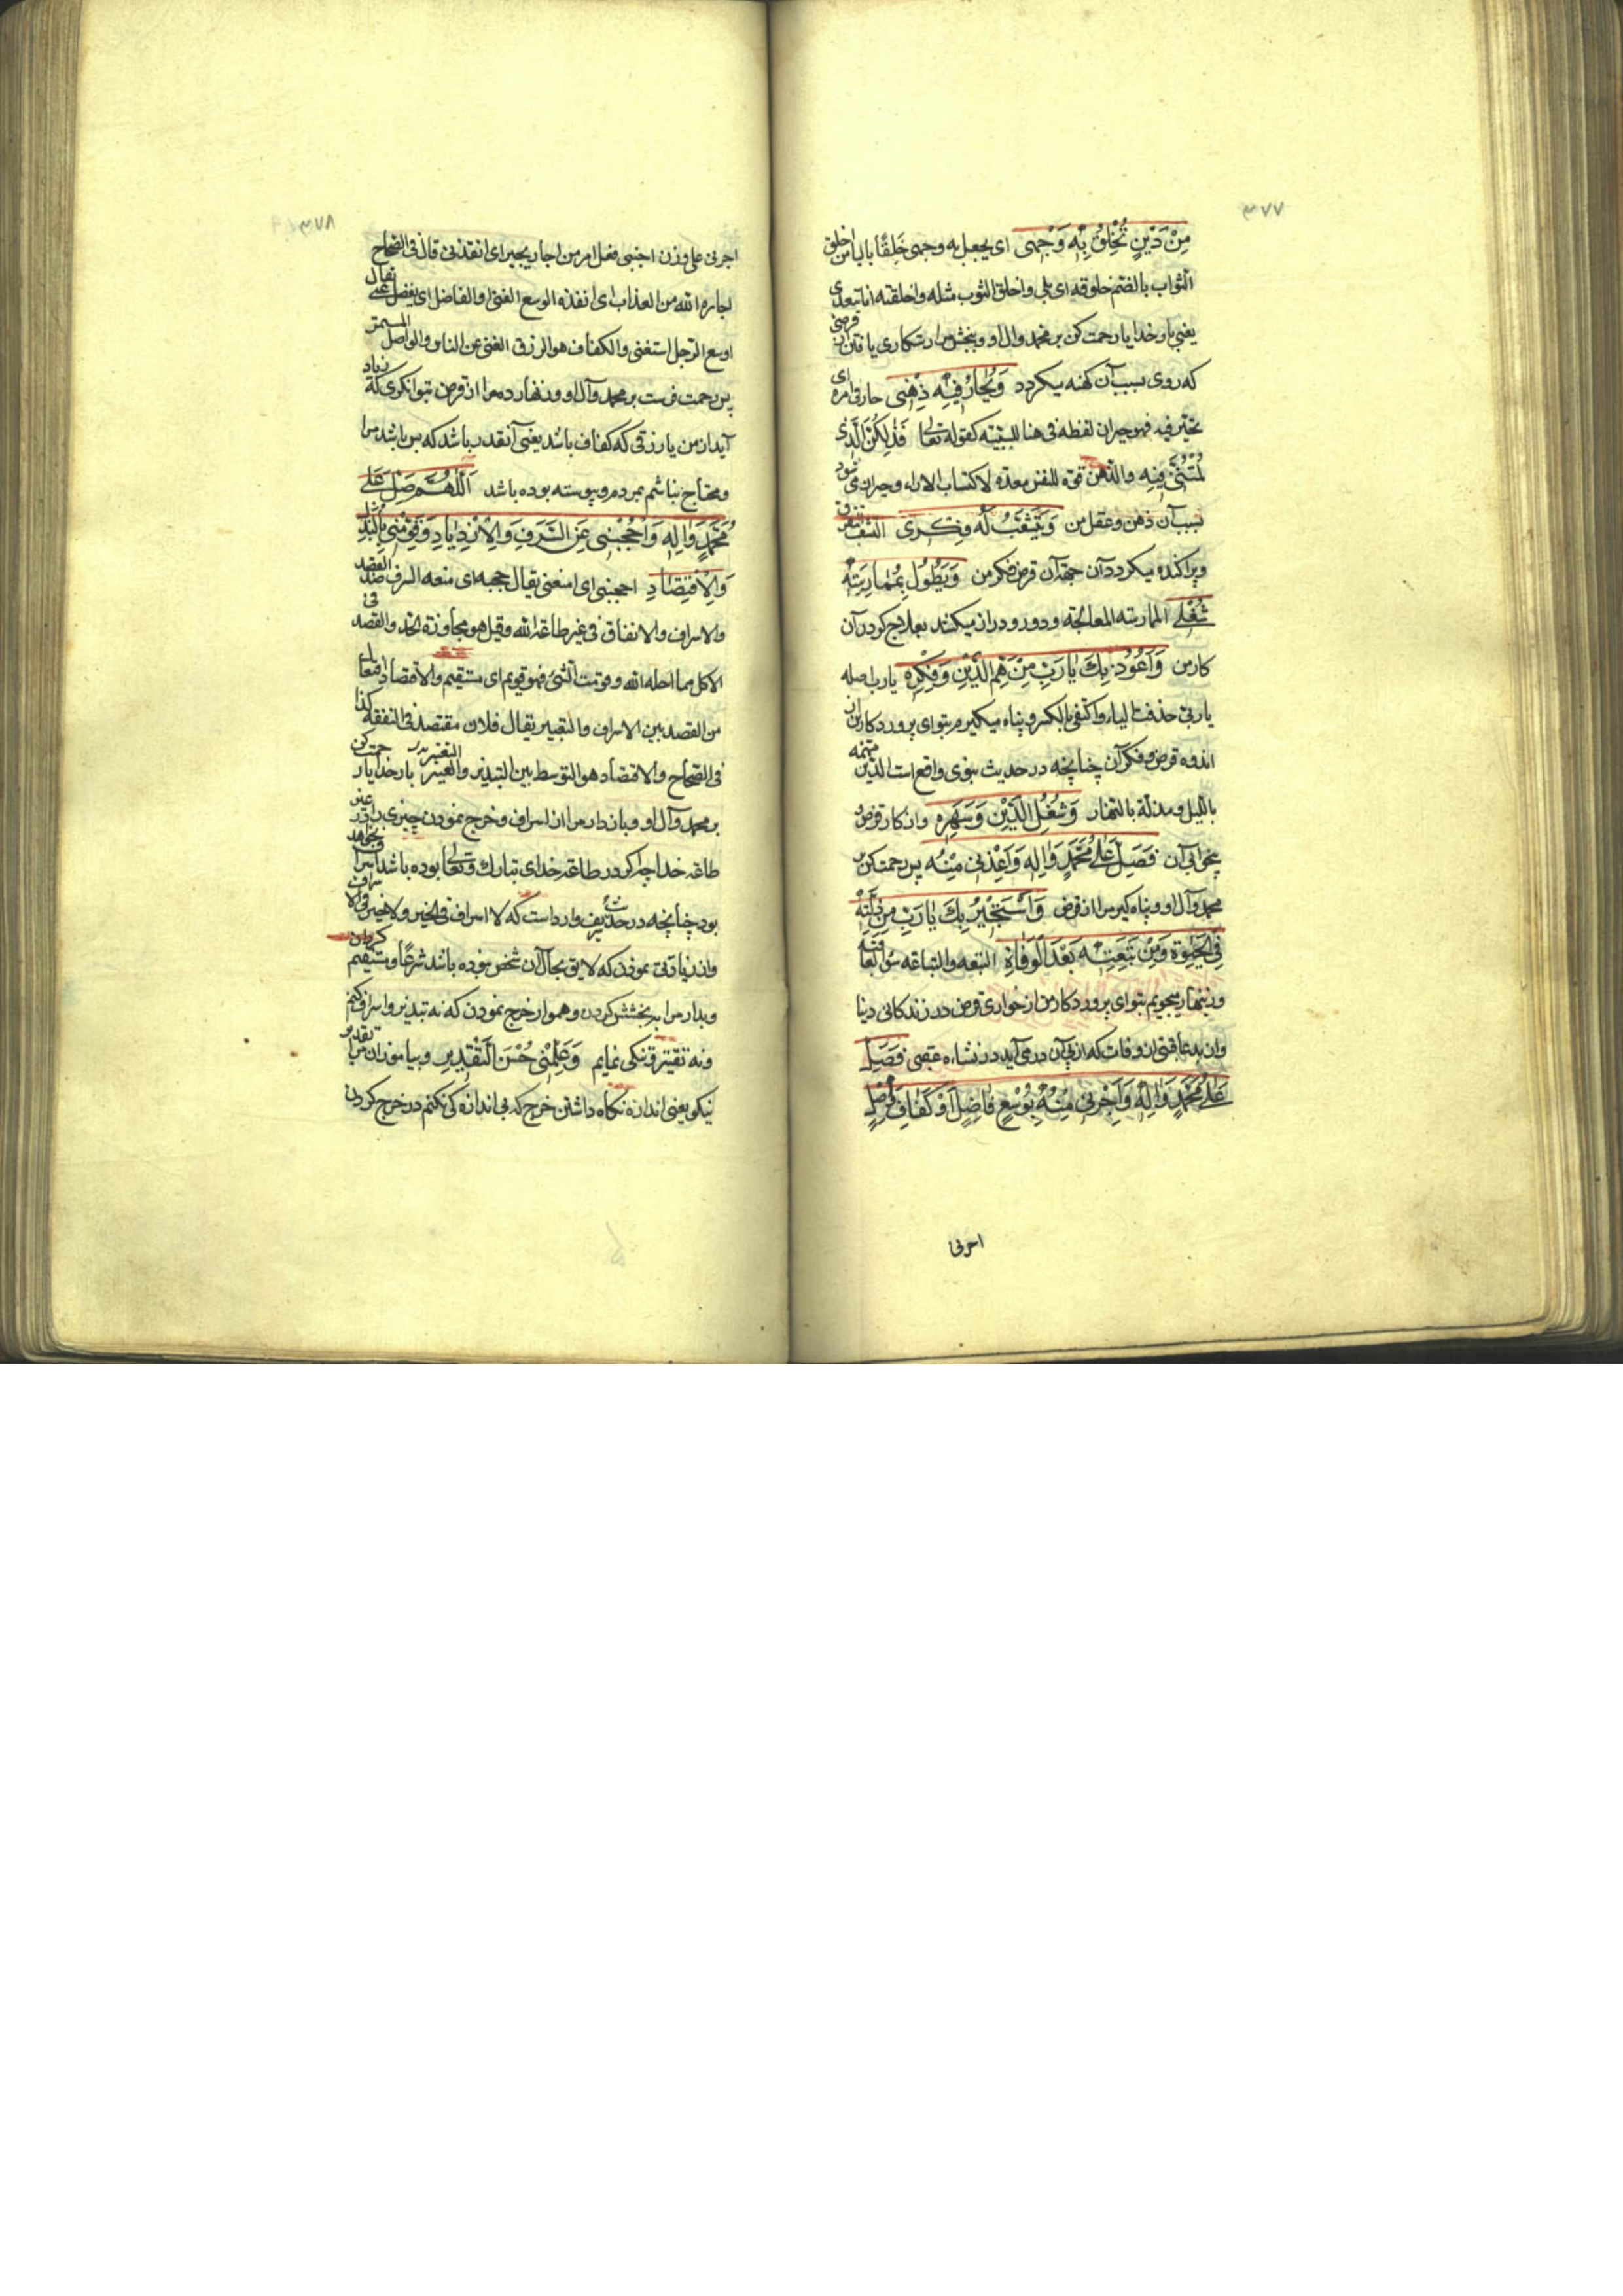 ٣٧٧
مِنْ دَيْنٍ تُخْلِقُ بِهِ وَجْهِی ای یجعل به وجهی خَلِقًا بالیا من اخلق
الثواب بالضم خلوقه ای بلی واخلق الثوب مثله واخلقته انا یتعدی
یعنی بار خدایا رحمت کن بر محمد وال او وببخش مرا رستکاری یافتن از قرضی
که روی بسبب آن کهنه میکردد وَيُحَارُ فِيهِ ذِهْنِی حار فی امره ای
تحیر فیه فهو حیران لفظه فی هنا للسببیّه کقوله تعالی فَذٰلِكُنَّ الَّذِی
لُمْتُنَّنِی فِیهِ والذهن قوّة للنفس معدّة لاکتساب الاراء وحیران می شود
بسبب آن ذهن وعقل من وَيَتَشَعَّبُ لَهُ فِكْرِی التشعب التفرق
وپراکنده میکردد آن جهة آن قرض فکر من وَيَطُولُ بِمُمَارَسَتِهِ
شُغْلِی الممارسته المعالجة و دور و دراز میکند بعلاج کردن آن
کار من وَاَعُوذُ بِكَ يَا رَبِّ مِنْ هَمِّ الدَّيْنِ وَفِكْرِهِ یا رب اصله
یا ربی حذفت الیاء واکتفی بالکسر و پناه میکیرم بتو ای پروردکار من از
اندوه قرض و فکر آن چنانچه در حدیث نبوی واقع است الدین مهمه
باللیل ومذلة بالنهار وَشُغْلِ الدَّيْنِ وَسَهَرِهِ واز کار قرض و
بیخوابی آن فَصَلِّ عَلَى مُحَمَّدٍ وَاٰلِهِ وَاَعِذْنِی مِنْهُ پس رحمت کن بر
محمد وآل او و پناه کیر مرا از قرض وَاَسْتَجِيرُ بِكَ يَا رَبِّ مِنْ ذِلَّتِهِ
فِی الْحَيٰوةِ وَمِنْ تَبِعَتِهِ بَعْدَ الْوَفَاةِ التبعه والتباعه سوء العاقبة
وزینهار میجویم بتو ای پروردکار من از خواری قرض در زندکانی دنیا
واز بد عاقبتی از وفات که از پی آن در می آید در نشاءه عقبی فَصَلِّ
عَلَى مُحَمَّدٍ وَاٰلِهِ وَاَجِرْنِی مِنْهُ بِوُسْعٍ فَاضِلٍ اَوْ كَفَافٍ وَاصِلٍ
اجرنی
٣٧٨
اجرنی علی وزن اجبنی فعل امر من اجار یجیر ای انقذنی قال فی الصحاح
اجاره الله من العذاب ای انقذه الوسع الغنی والفاضل ای یفضل عنی یقال
اوسع الرجل استغنی والکفاف هو الرزق الغنی عن الناس والواصل المستمر
پس رحمت فرست بر محمد وآل او وزنهار ده مرا از قرض بتوانکری که زیاد
آید از من یا رزقی که کفاف باشد یعنی آنقدر باشد که بس باشد مرا
ومحتاج نباشم بمردم و پیوسته بوده باشد اَللّٰهُمَّ صَلِّ عَلَى
مُحَمَّدٍ وَاٰلِهِ وَاحْجُبْنِی عَنِ السَّرَفِ وَالْاِزْدِيَادِ وَقَوِّمْنِی بِالْبَذْلِ
وَالْاِقْتِصَادِ احجبنی ای امنعنی یقال حجبه ای منعه السرف ضد القصد
والاسراف والانفاق فی غیر طاعة الله وقیل هو مجاوزة الحد والقصد فی
الاکل مما احله الله وقومت الشئ فهو قویم ای مستقیم والاقتصاد افتعال
من القصد بین الاسراف والتقتیر یقال فلان مقتصد فی النفقه کذا
فی الصحاح والاقتصاد هو التوسط بین التبذیر والتقتیر بار خدایا رحمت کن
بر محمد وآل او وبازدار مرا از اسراف وخرج نمودن چیزی را در غیر
طاعة خدا چه اکر در طاعة خدای تبارک وتعالی بوده باشد اسراف نخواهد
بود چنانچه در حدیث شریف وارد است که لا اسراف فی الخیر ولا خیر فی الاسراف
واز زیادتی نمودن که لایق بحال آن شخص نبوده باشد شرعًا ومستقیم کردان
وبدار مرا ببخشش کردن وهموار خرج نمودن که نه تبذیر و اسراف کنم
ونه تقتیر و تنکی نمایم وَعَلِّمْنِی حُسْنَ التَّقْدِيرِ وبیاموزان مرا تقدیر
نیکو یعنی اندازه نکاه داشتن خرج که بی اندازه کی نکنم در خرج کردن